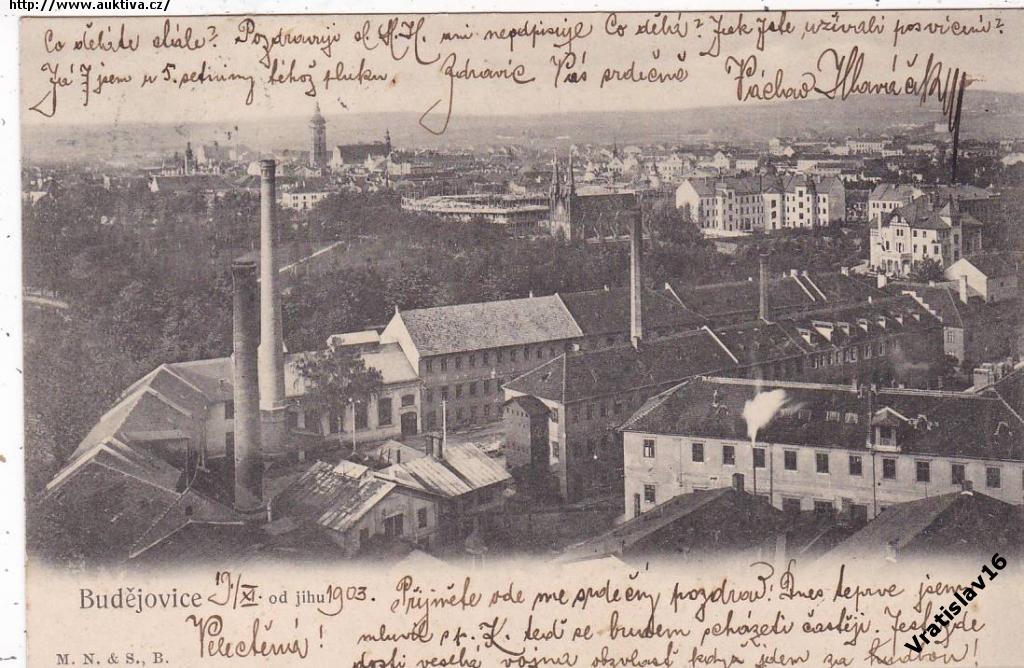 http://www.auktiva.cz/
Co děláte stále? Pozdravuji sl. M. K. ani nepodpisuje Co dělá? Jak jste užívali posvícení?
Já jsem u 5. setniny téhož pluku. Zdravíc Vás srdečně Václav Hlaváček
Budějovice 17/XI. od jihu 1903. Přijměte ode me srdečný pozdrav! Dnes teprve jsem
Velectěná! mluvil s p. K. teď se budem scházeti častěji. Jest zde
M. N. & S., B. dosti veselá vojna obzvlášť když jdem za hudbou!
Vratislav16